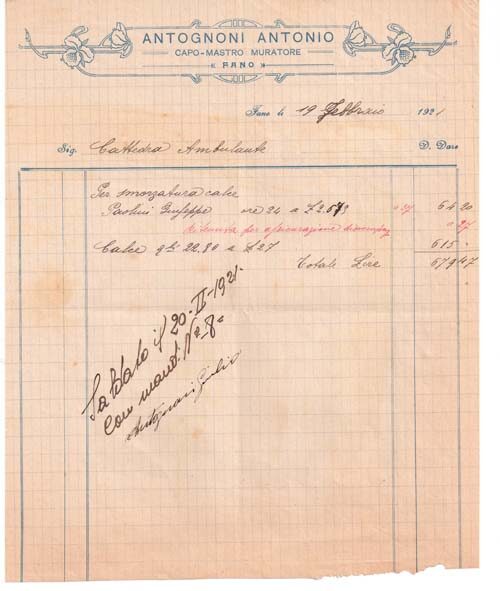 ANTOGNONI ANTONIO
CAPO-MASTRO MURATORE
FANO
Fano li 19 Febbraio 1921
Sig. Cattedra Ambulante D. Dare
Per smorzatura calce
Paolini Giuseppe ore 24 a £ 2.673 " 27 64 20
Ritenuta per assicurazione disoccupaz " 27
Calce qli 22.80 a £ 27 615 "
Totale Lire 679 47
Saldato il 20-II-1921.
Con mand. No 8
Antognoni Giulio